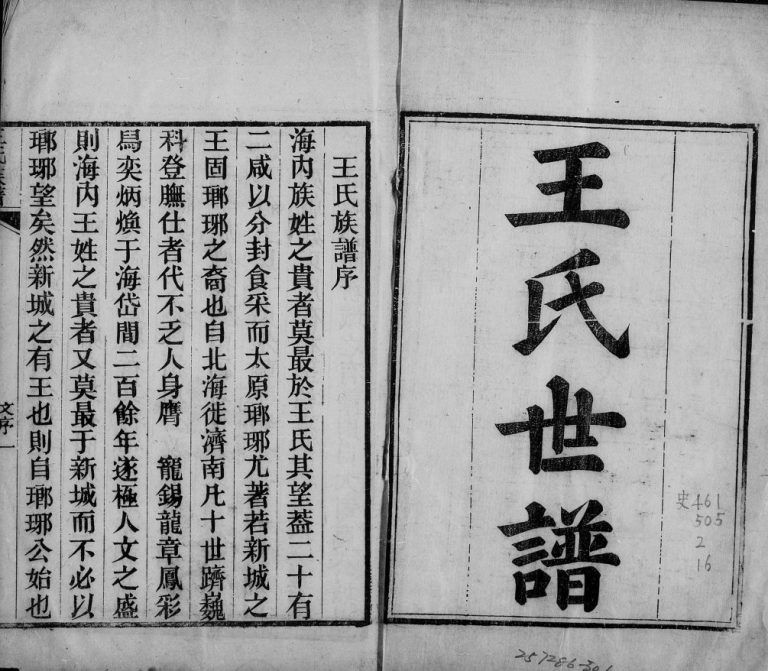 王氏世譜
史461
505
2
16
257286-301
王氏族譜序
海內族姓之貴者莫最於王氏其望葢二十有
二咸以分封食采而太原瑘琊尤著若新城之
王固瑘琊之裔也自北海徙濟南凡十世躋巍
科登膴仕者代不乏人身膺　寵錫龍章鳳彩
舄奕炳煥于海岱間二百餘年遂極人文之盛
則海內王姓之貴者又莫最于新城而不必以
瑘琊望矣然新城之有王也則自瑘琊公始也
文序一